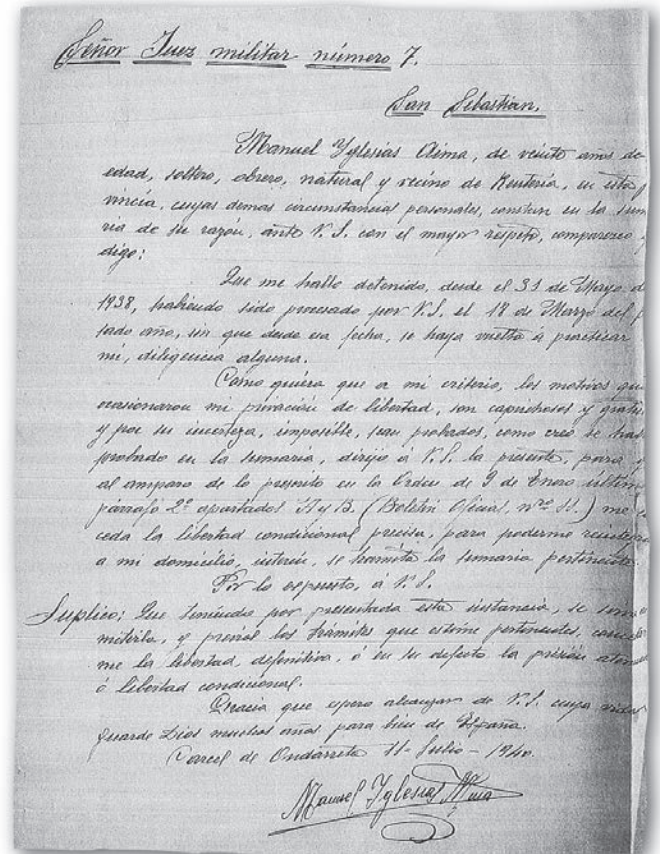 Señor Juez militar número 7.
San Sebastian.
Manuel Yglesias Oima, de veinte años de
edad, soltero, obrero, natural y vecino de Rentería, en esta p
vincia, cuyas demas circumstancias personales, constan en la sum
ria de su razón, ante V.S. con el mayor respeto, comparezco y
digo:
Que me hallo detenido, desde el 31 de Mayo d
1938, habiendo sido procesado por V.S. el 18 de Marzo del p
sado año, sin que desde esa fecha, se haya vuelto á practicar
mi, diligencia alguna.
Como quiera que a mi criterio, los motivos que
ocasionaron mi privación de libertad, son caprichosos y gratu
y por su incerteza, imposible, sean probados, como creo se ha
probado en la sumaria, dirijo á V.S. la presente, para q
al amparo de lo prescrito en la Orden de 9 de Enero último
párrafo 2º apartados y B. (Boletín Oficial, nº 11.) me c
ceda la libertad condicional precisa, para poderme reintegra
a mi domicilio, interin, se tramita la sumaria pertinente.
Por lo expuesto, á V.S.
Suplico: Que teniendo por presentada esta instancia, se
mitirla, y previos los trámites que estime pertinentes, conce
me la libertad, definitiva, ó en su defecto la prisión aten
ó libertad condicional.
Gracia que espero alcanzar de V.S. cuya vida
guarde Dios muchos años para bien de España.
Carcel de Ondarreta 11- Julio - 1940.
Manuel Yglesias